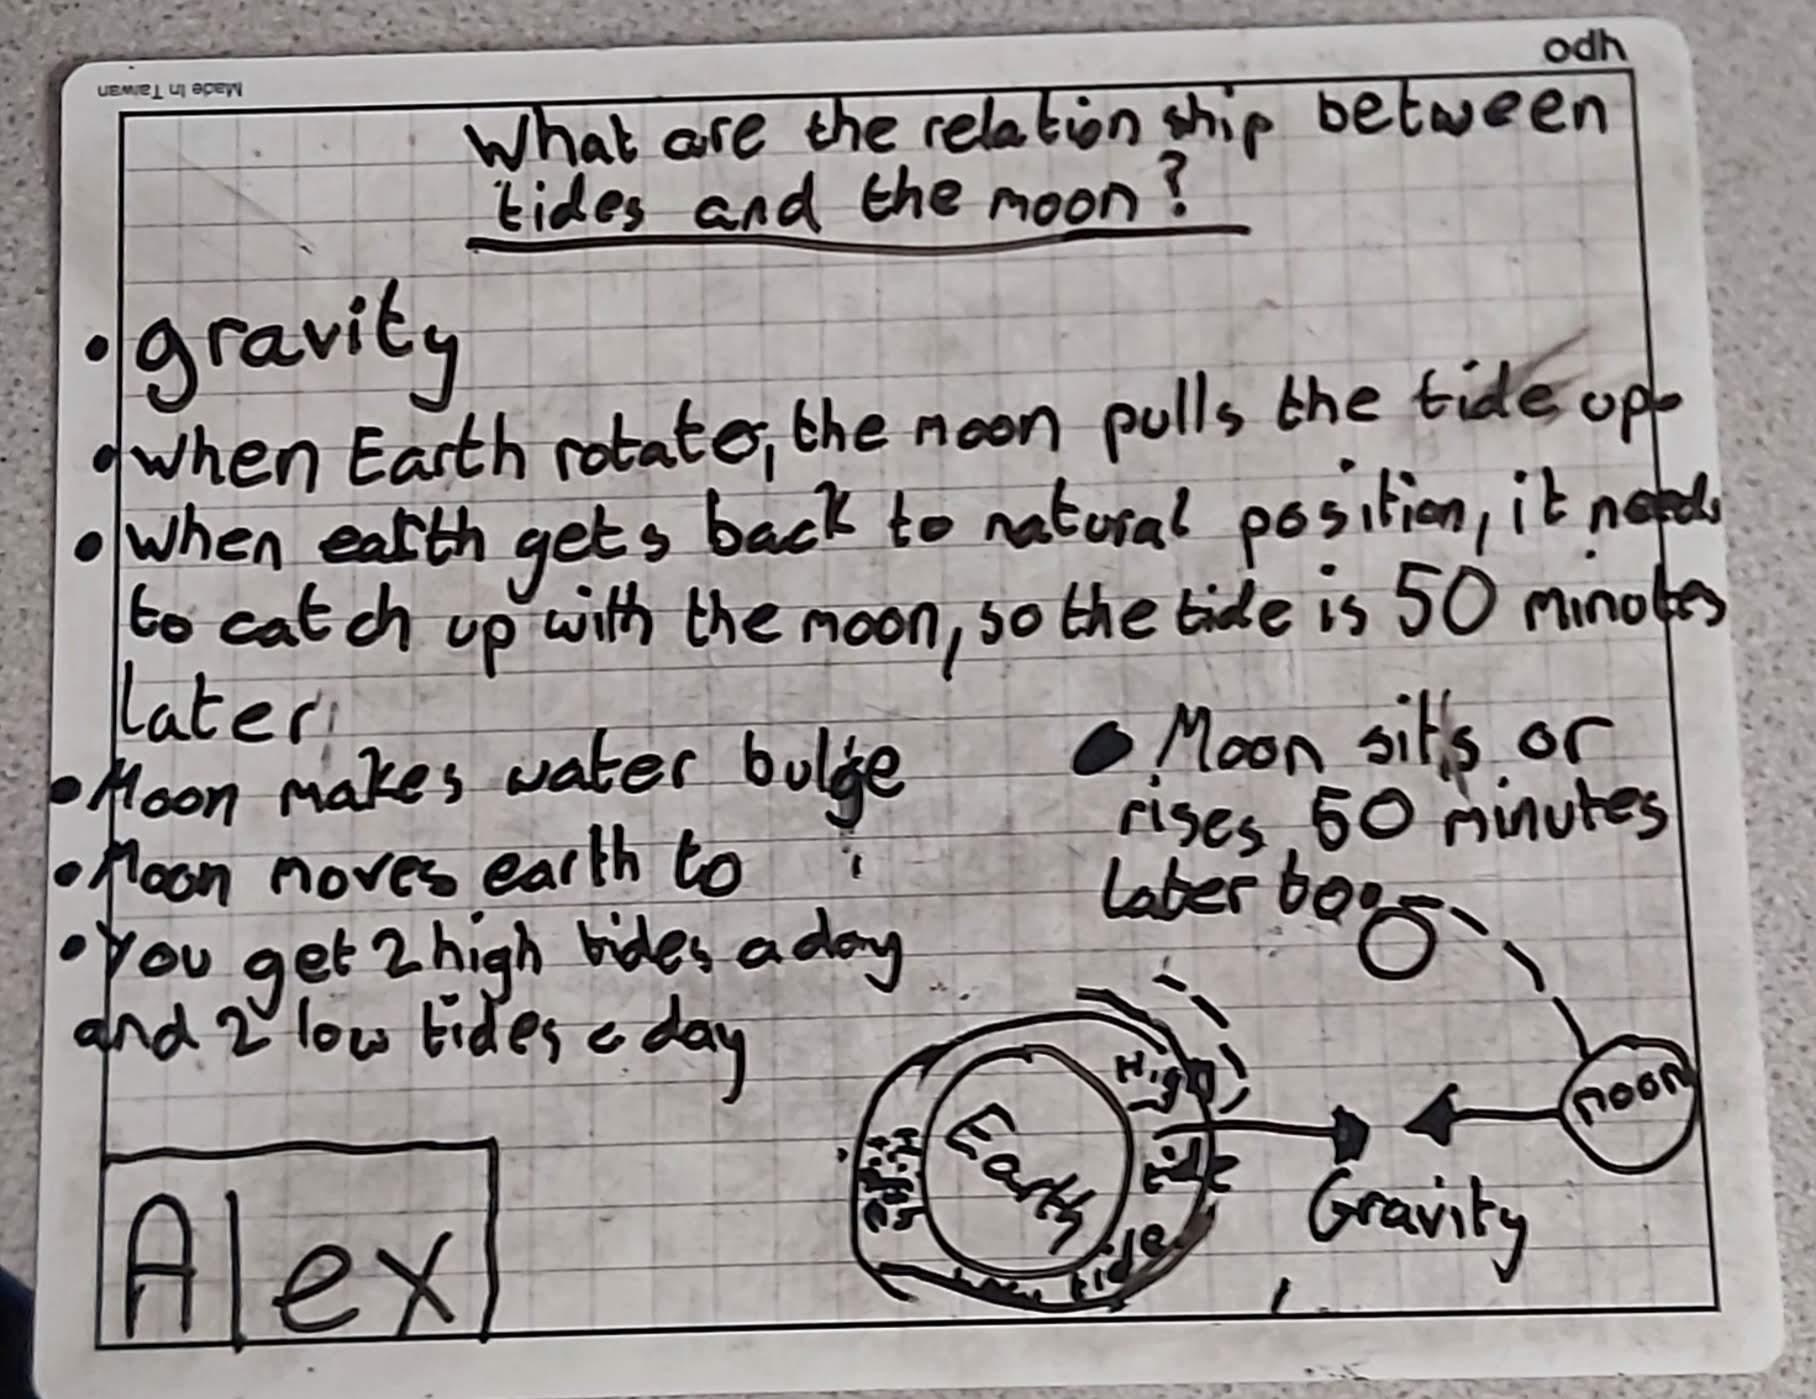 odh
Made In Taiwan
What are the relation ship between
tides and the moon?
• gravity
• When Earth rotate, the moon pulls the tide up
• When earth gets back to natural position, it needs
to catch up with the moon, so the tide is 50 minutes
later
• Moon makes water bulge
• Moon moves earth to
• You get 2 high tides a day
and 2 low tides a day
• Moon sits or
rises 50 minutes
later too.
High
tide
Earth
tide
moon
Gravity
Alex